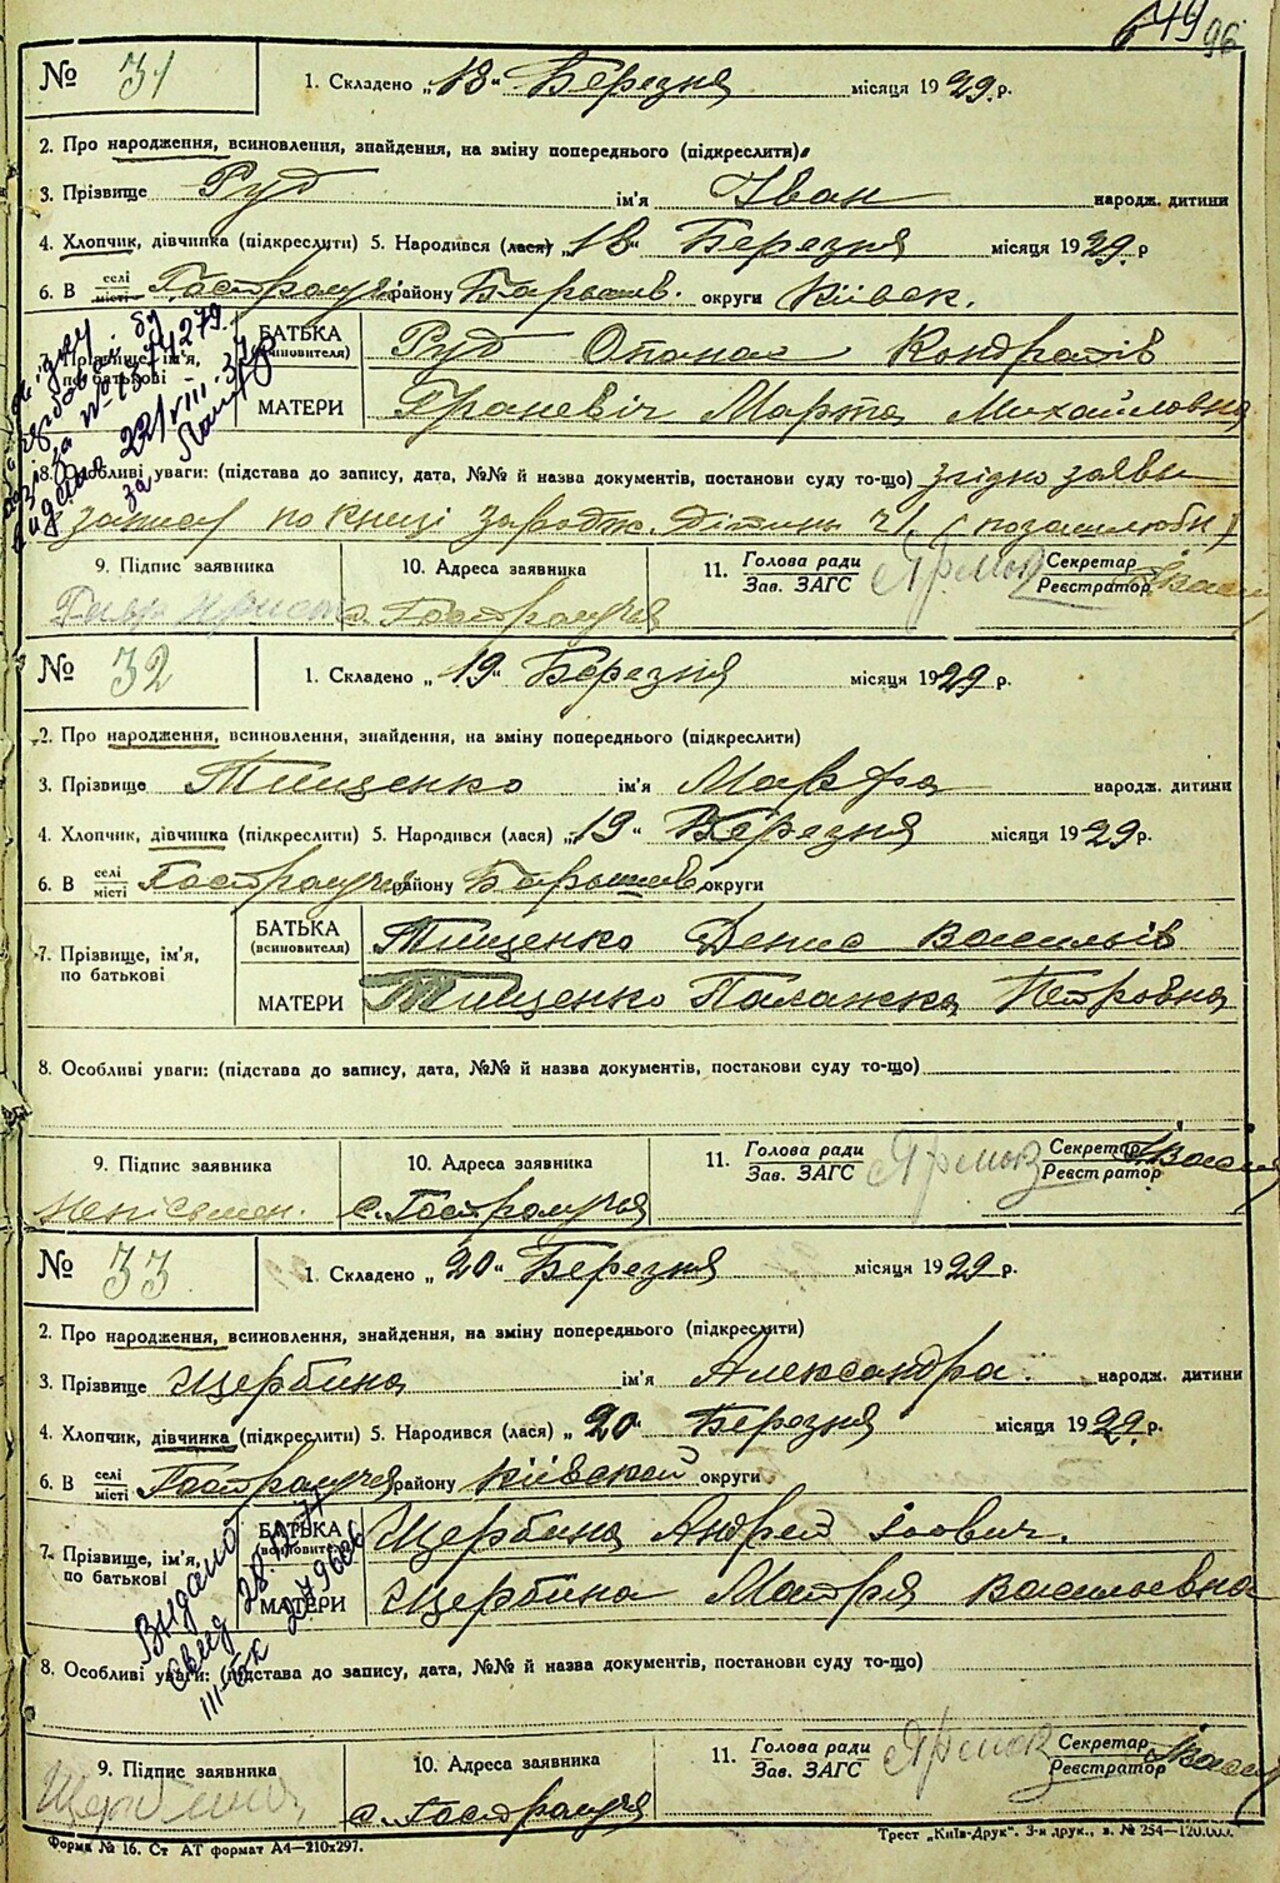 96
№ 31 1. Складено „18“ Березня місяця 1929. р.
2. Про народження, всиновлення, знайдення, на зміну попереднього (підкреслити)
3. Прізвище Руд ім'я Іван народж. дитини
4. Хлопчик, дівчинка (підкреслити) 5. Народився (лася) „18“ Березня місяця 1929. р
6. В селі місті Гостролуччі району Баришів. округи Київск.
7. Прізвище, ім'я, по батькові
БАТЬКА (всиновителя) Руд Опанас Кондратів
МАТЕРИ Граневіч Марта Михайловна
8. Особливі уваги: (підстава до запису, дата, №№ й назва документів, постанови суду то-що) згідно заяви
запису по книзі зародж. дітинь ч1 (позашлюбн)
9. Підпис заявника 10. Адреса заявника 11. Голова ради Зав. ЗАГС Ярмок Секретар Реєстратор
с. Гостролуччя
№ 32 1. Складено „19“ Березня місяця 1929 р.
2. Про народження, всиновлення, знайдення, на зміну попереднього (підкреслити)
3. Прізвище Тищенко ім'я Марфа народж. дитини
4. Хлопчик, дівчинка (підкреслити) 5. Народився (лася) „19“ Березня місяця 1929 р.
6. В селі місті Гостролуччя району Баришів округи
7. Прізвище, ім'я, по батькові
БАТЬКА (всиновителя) Тищенко Денис Васильів
МАТЕРИ Тищенко Палажка Петровна
8. Особливі уваги: (підстава до запису, дата, №№ й назва документів, постакови суду то-що)
9. Підпис заявника 10. Адреса заявника 11. Голова ради Зав. ЗАГС Ярмок Секретар Реєстратор
непісьмен. с. Гостролуччя
№ 33 1. Складено „20“ Березня місяця 1929 р.
2. Про народження, всиновлення, знайдення, на зміну попереднього (підкреслити)
3. Прізвище Щербина ім'я Александра народж. дитини
4. Хлопчик, дівчинка (підкреслити) 5. Народився (лася) „20“ Березня місяця 1929. р.
6. В селі місті Гостролуччя району Київской округи
7. Прізвище, ім'я, по батькові
БАТЬКА (всиновителя) Щербина Андрей Іович.
МАТЕРИ Щербина Мотря Васильевна
Выдано
свид 28.
III-БК 279606
8. Особливі уваги: (підстава до запису, дата, №№ й назва документів, постанови суду то-що)
9. Підпис заявника 10. Адреса заявника 11. Голова ради Зав. ЗАГС Ярмок Секретар Реєстратор
Щербина с. Гостролуччя
Форма № 16. Ст АТ формат А4—210х297. Трест „Київ-Друк“. 3-я друк., з. № 254—120.000.